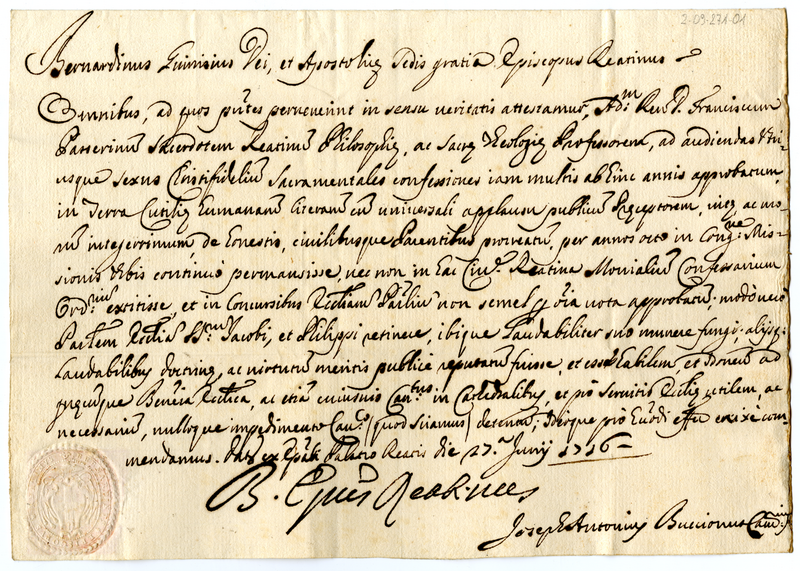 2-09-271-01
Bernardinus Guinisius Dei, et Apostolicę Sedis gratia Episcopus Reatinus
Omnibus, ad quos pñtes pervenerint in sensu veritatis attestamur, Adm. Revd. Franciscum
Sacerdotem Reatinũ Philosophię, ac Sacrę Theologię Professorem, ad audiendas utri-
usque sexus Christifideliũ Sacramentales confessiones iam multis ab hinc annis approbatum,
in Terra Cutilię humanarũ literarũ cũ universali applausu publicũ Pręceptorem, vitę, ac mo-
rũ integerrimum, de honestis, civilibusque Parentibus procreatũ, per annos octo in Congne. Mis-
sionis Urbis continuo permansisse, nec non in hac Civ. Reatina Monialiũ Confessarium
Ordm. extitisse, et in Concursibus Eccliarũ Parliũ non semel oĩa vota approbatũ; modo vero
Parlem Eccliã Ss. Jacobi, et Philippi retinere, ibique laudabiliter suo munere fungi, alijsq.
laudabilibus doctrinę, ac virtutũ meritis publice reputatũ fuisse, et esse habilem, et idoneũ ad
quęcũque Beneficia Ecclica, ac etiã cuiusvis in Cathedralibus, et pro servitio Ecclię utilem, ac
necessariũ, nulloque impedimento Can. (quod sciamus) detentũ; Ideoque pro effu enixe com-
mendamus. Datũ ex Ep̃ali Palatio Reatis die 27. Junij 1716
B. Ep̃us Reatinus
Joseph Antonius Buccionus Canrius